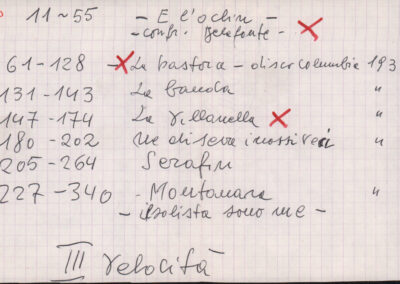 11 ~ 55 - E l'ochin -
- confr. Belafonte -
61 - 128 - La pastora - disco columbia 193
131 - 143 La banda "
147 - 174 La Villanella "
180 - 202 me diseva "
205 - 264 Serafin
227 - 340 - Montanara "
- il solista sono me -
III velocità